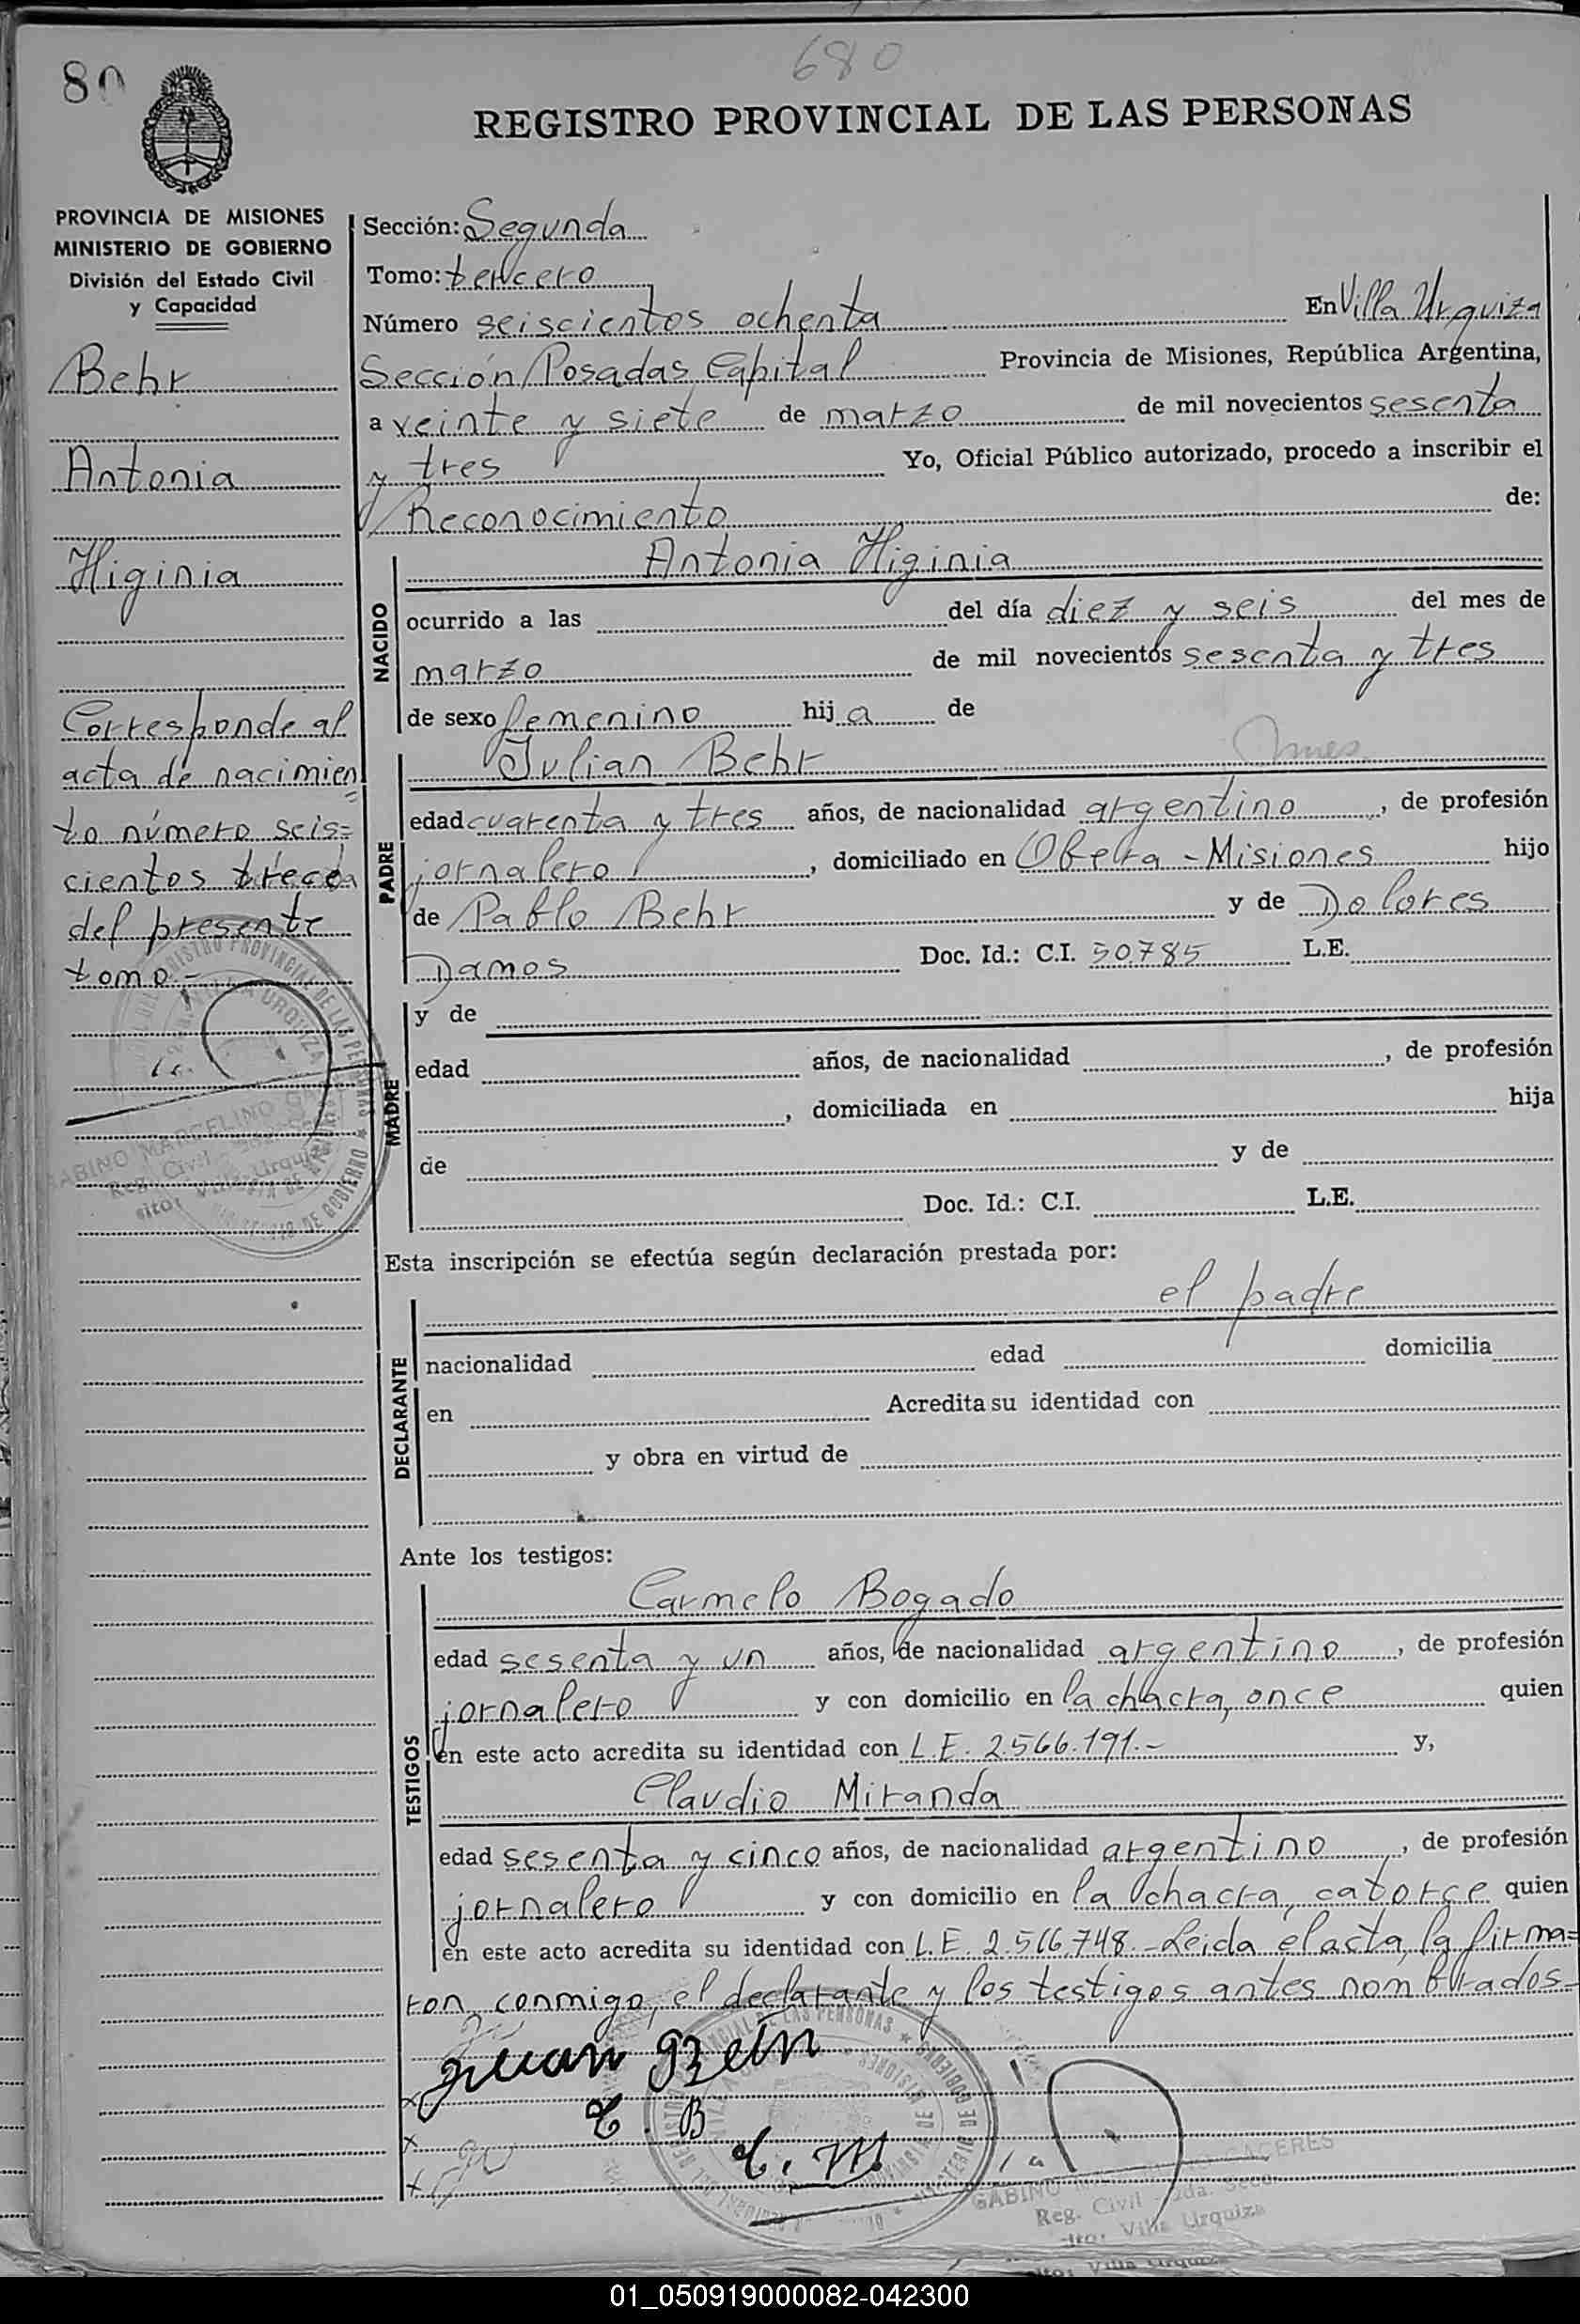 680
80
REGISTRO PROVINCIAL DE LAS PERSONAS
PROVINCIA DE MISIONES
MINISTERIO DE GOBIERNO
División del Estado Civil
y Capacidad
Behr
Antonia
Higinia
Corresponde al
acta de nacimien
to número seis=
cientos trece
del presente
tomo.-
Sección: Segunda
Tomo: tercero
Número seiscientos ochenta En Villa Urquiza
Sección Posadas Capital Provincia de Misiones, República Argentina,
a veinte y siete de marzo de mil novecientos sesenta
y tres Yo, Oficial Público autorizado, procedo a inscribir el
Reconocimiento de:
NACIDO
Antonia Higinia
ocurrido a las del día diez y seis del mes de
marzo de mil novecientos sesenta y tres
de sexo femenino hija de
PADRE
Julian Behr
edad cuarenta y tres años, de nacionalidad argentino, de profesión
jornalero, domiciliado en Obera - Misiones hijo
de Pablo Behr y de Dolores
Damos Doc. Id.: C.I. 50.785 L.E.
MADRE
y de
edad años, de nacionalidad , de profesión
, domiciliada en hija
de y de
Doc. Id.: C.I. L.E.
Esta inscripción se efectúa según declaración prestada por:
DECLARANTE
el padre
nacionalidad edad domicilia
en Acredita su identidad con
y obra en virtud de
Ante los testigos:
TESTIGOS
Carmelo Bogado
edad sesenta y un años, de nacionalidad argentino, de profesión
jornalero y con domicilio en la chacra, once quien
en este acto acredita su identidad con L.E. 2.566.191.- y,
Claudio Miranda
edad sesenta y cinco años, de nacionalidad argentino, de profesión
jornalero y con domicilio en la chacra, catorce quien
en este acto acredita su identidad con L.E. 2.566.748.- Leida el acta, la firma=
ron, conmigo, el declarante y los testigos antes nombrados-
C. B
C. M.
GABINO CACERES
Reg. Civil - 2da. Secc.
Villa Urquiza
01_050919000082-042300